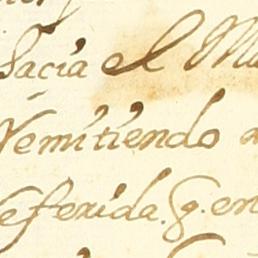 hacia el
Remitiendo a
referida. q. en